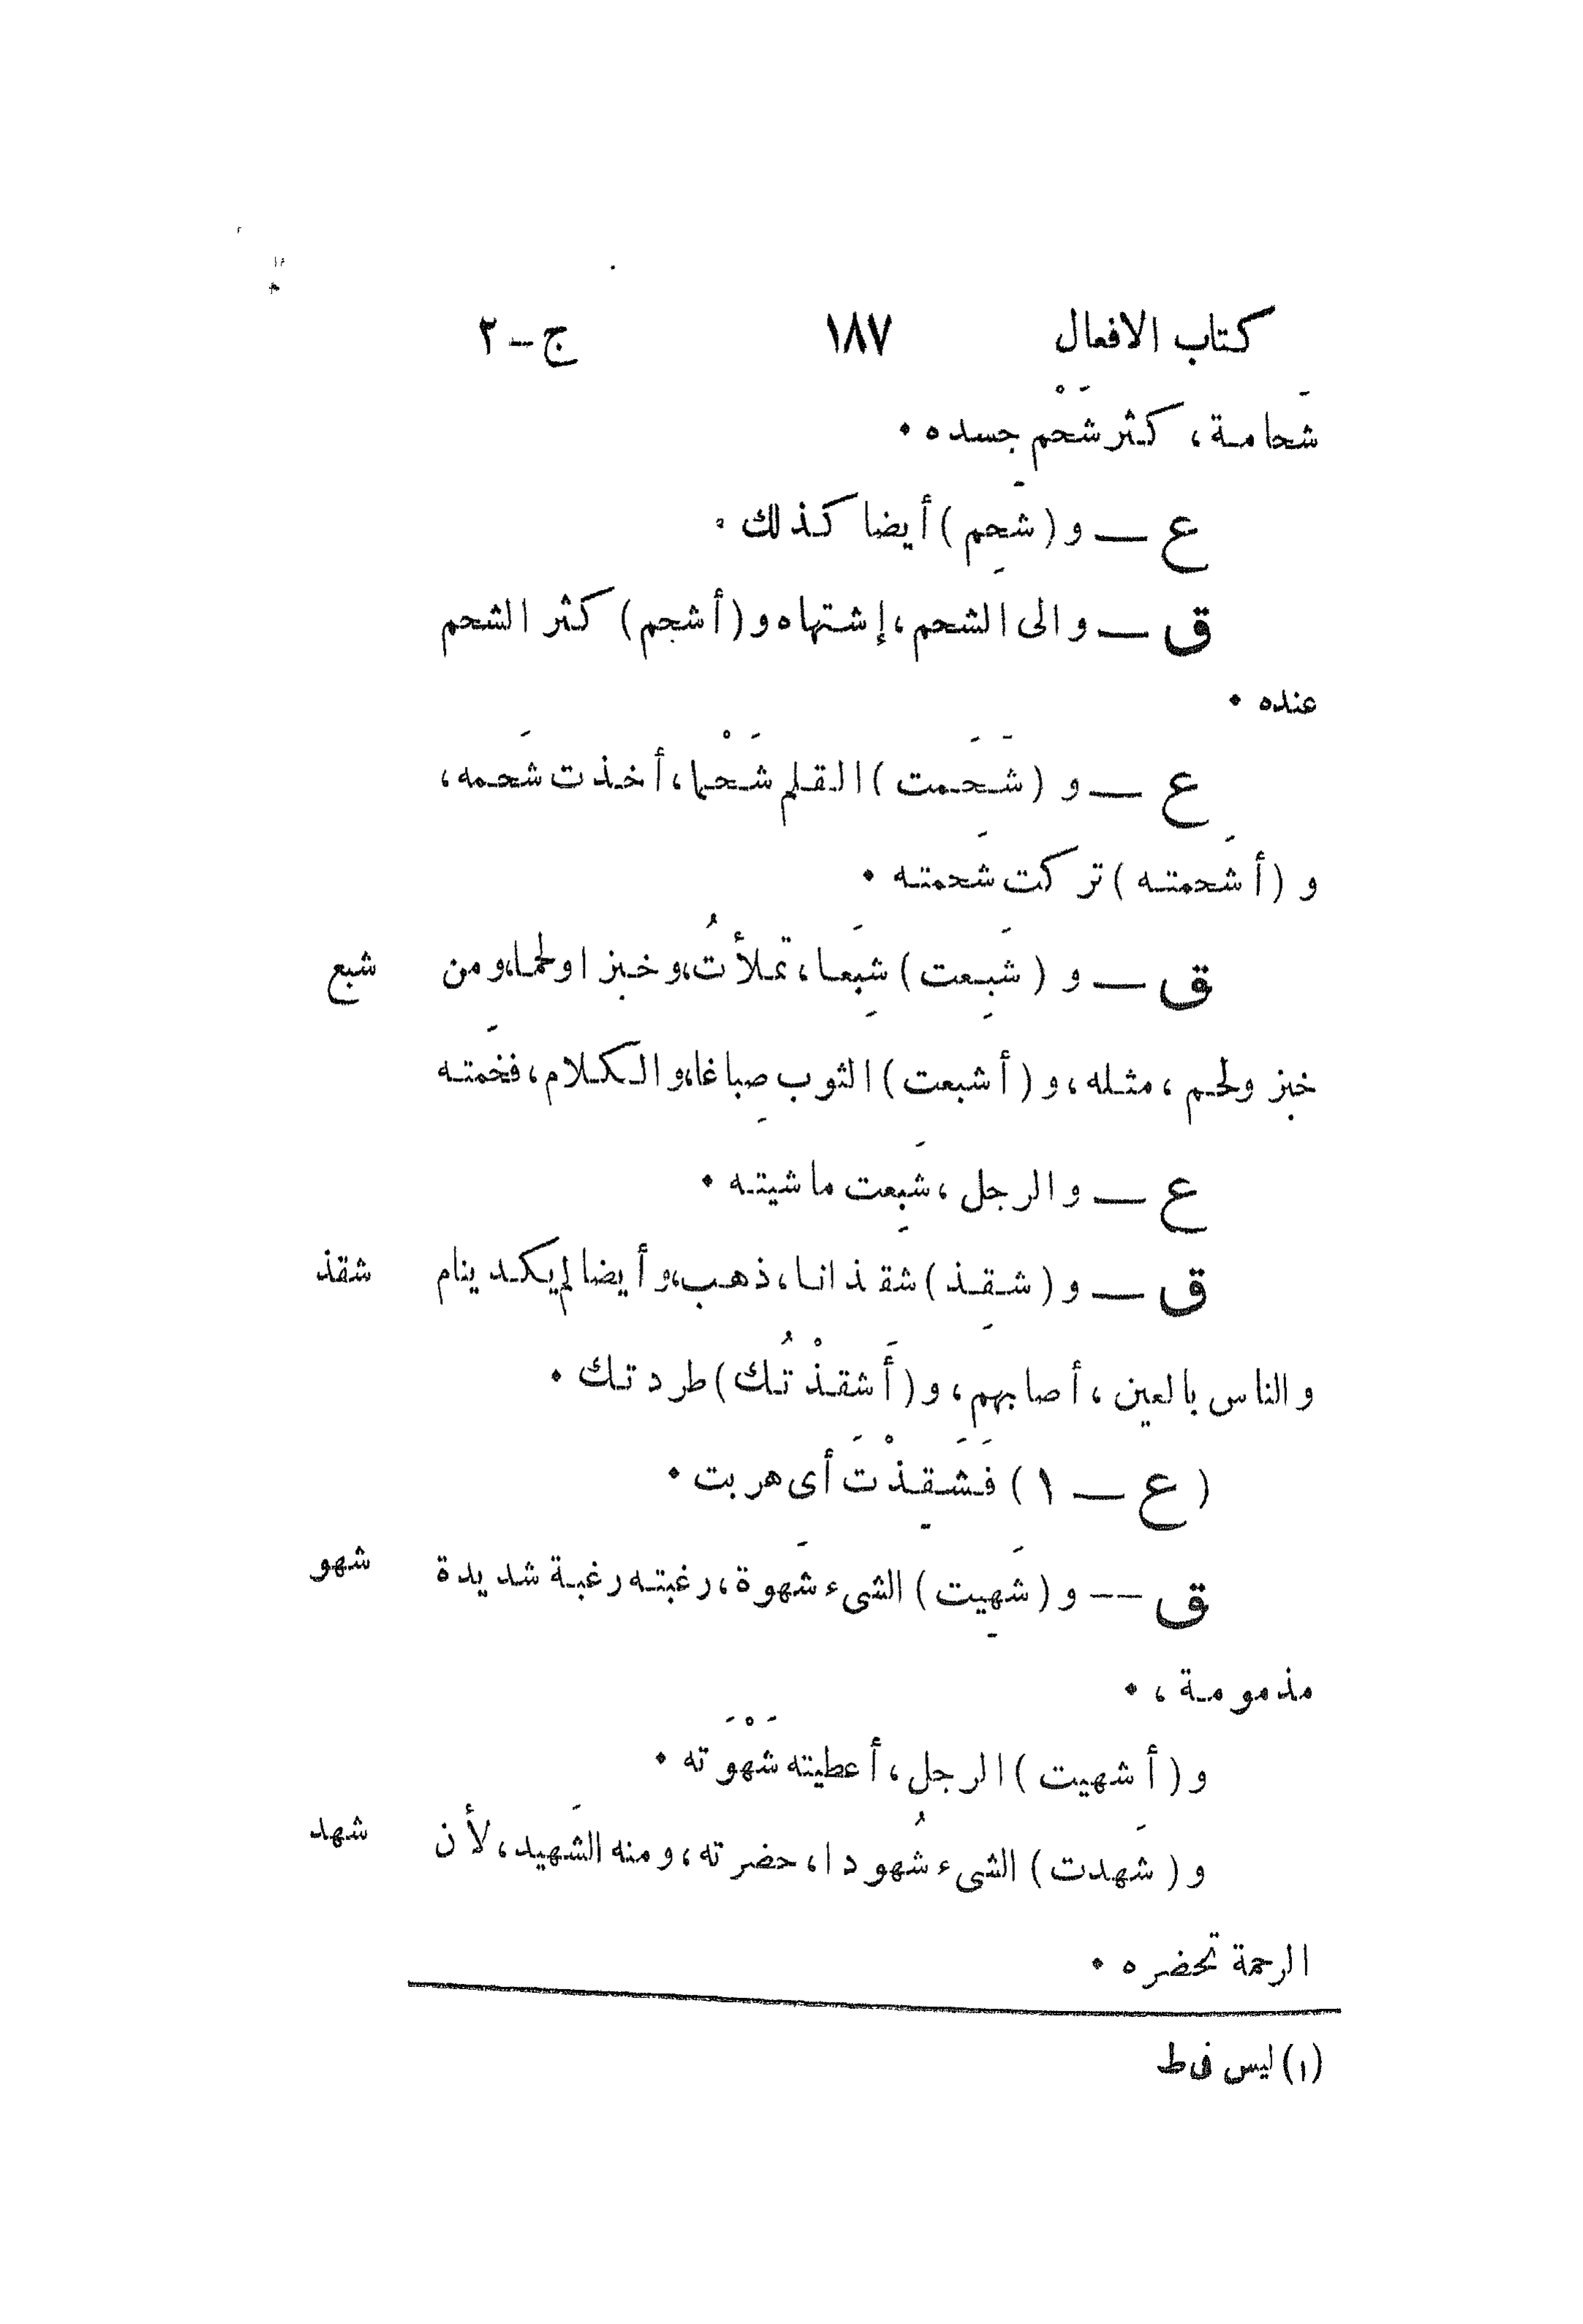 كتاب الافعال ١٨٧ ج-٢
شَحامة، كثر شَحْم جسده .
ع — و (شَحِم) أيضا كذلك .
ق — والى الشحم، إشتهاه و (أشحم) كثر الشحم
عنده .
ع — و (شَحَمت) القلم شَحْما، أخذت شَحمه،
و (أشَحمته) تركت شَحمته .
ق — و (شَبِعت) شِبَعا، تملأتُ، وخبزا ولحما، ومن شبع
خبز ولحم، مثله، و (أشبعت) الثوب صِباغا، والكلام، فخَمته
ع — والرجل، شَبِعت ماشيته .
ق — و (شقِذ) شقذانا، ذهب، وأيضا لم يكد ينام شقذ
والناس بالعين، أصابهم، و (أَشقذْتُك) طردتك .
(ع — ١) فَشَقِذْتَ أى هربت .
ق -- و (شَهِيت) الشىء شَهوة، رغبته رغبة شديدة شهو
مذمومة، .
و (أشهيت) الرجل، أعطيته شَهْوَته .
و (شَهدت) الشىء شُهودا، حضرته، ومنه الشَهيد، لأن شهد
الرحمة تحضره .
(١) ليس فى ط